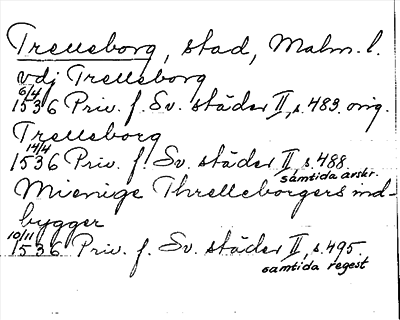 Trelleborg, stad, Malm. l.
vdj Trelleborg
6/4
1536 Priv. f. Sv. städer II, s. 483. orig.
Trelleborg
14/4
1536 Priv. f. Sv. städer II, s. 488.
samtida avskr.
Mienige Threlleborgers ind-
bygger
10/11
1536 Priv. f. Sv. städer II, s. 495.
samtida regest